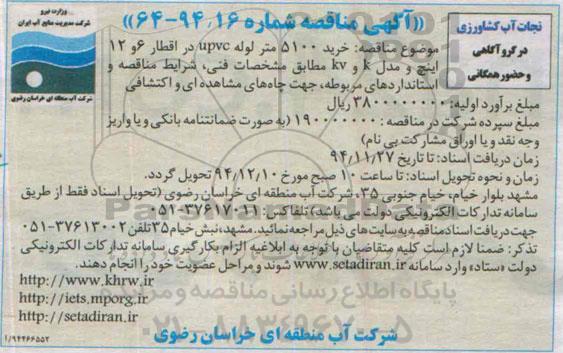 نجات آب کشاورزی
در گرو آگاهی
و حضور همگانی
وزارت نیرو
شرکت مدیریت منابع آب ایران
شرکت آب منطقه ای خراسان رضوی
«آگهی مناقصه شماره ۱۶-۹۴-۶۴»
موضوع مناقصه: خرید ۵۱۰۰ متر لوله upvc در اقطار ۶و ۱۲
اینچ و مدل k و kv مطابق مشخصات فنی، شرایط مناقصه و
استانداردهای مربوطه، جهت چاه‌های مشاهده ای و اکتشافی
مبلغ برآورد اولیه: ۳۸۰۰۰۰۰۰۰۰ ریال
مبلغ سپرده شرکت در مناقصه: ۱۹۰۰۰۰۰۰۰ (به صورت ضمانتنامه بانکی و یا واریز
وجه نقد و یا اوراق مشارکت بی نام)
زمان دریافت اسناد: تا تاریخ ۹۴/۱۱/۲۷
زمان و نحوه تحویل اسناد: تا ساعت ۱۰ صبح مورخ ۹۴/۱۲/۱۰ تحویل گردد.
مشهد بلوار خیام، خیام جنوبی ۳۵، شرکت آب منطقه ای خراسان رضوی (تحویل اسناد فقط از طریق
سامانه تدارکات الکترونیکی دولت می باشد) تلفاکس: ۳۷۶۱۷۰۱۱-۰۵۱
جهت دریافت اسناد مناقصه به سایت های ذیل مراجعه نمائید. مشهد، نبش خیام ۳۵ تلفن ۳۷۶۱۳۰۰۲-۰۵۱
تذکر: ضمنا لازم است کلیه متقاضیان با توجه به ابلاغیه الزام بکارگیری سامانه تدارکات الکترونیکی
دولت «ستاد» وارد سامانه www.setadiran.ir شوند و مراحل عضویت خود را انجام دهند.
http://www.khrw.ir
http://iets.mporg.ir
http://setadiran.ir
شرکت آب منطقه ای خراسان رضوی
۱/۹۴۴۶۶۵۵۲
پایگاه اطلاع رسانی مناقصه و مزایده
۰۲۱-۸۸۳۴۹۶۷۰-۵